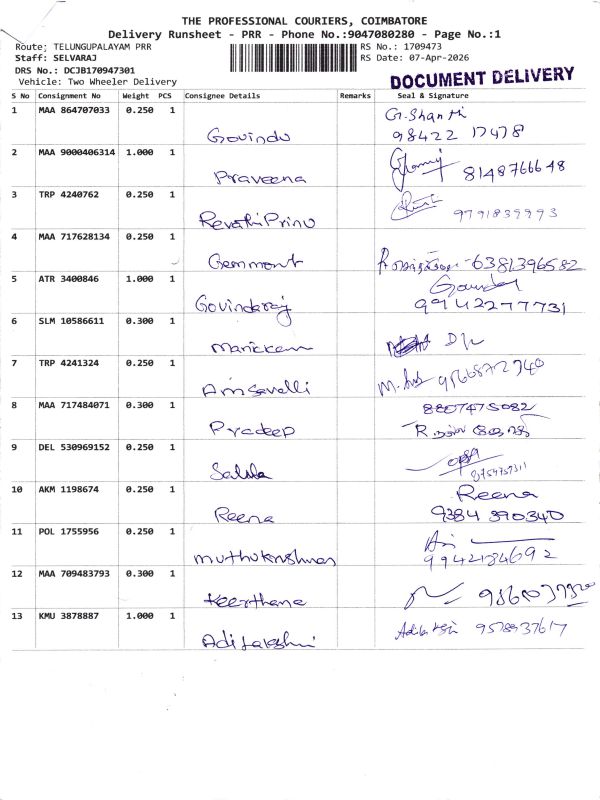 THE PROFESSIONAL COURIERS, COIMBATORE
Delivery Runsheet - PRR - Phone No.:9047080280 - Page No.:1
Route: TELUNGUPALAYAM PRR
RS No.: 1709473
Staff: SELVARAJ
RS Date: 07-Apr-2026
DRS No.: DCJB170947301
Vehicle: Two Wheeler Delivery
DOCUMENT DELIVERY
S No Consignment No Weight PCS Consignee Details Remarks Seal & Signature
1 MAA 864707033 0.250 1 Govindu G. Shanthi
98422 17478
2 MAA 9000406314 1.000 1 Praveena 8148766648
3 TRP 4240762 0.250 1 Revathi Prinu 9791839993
4 MAA 717628134 0.250 1 Gemmont 6381396582
5 ATR 3400846 1.000 1 Govindaraj
9942277731
6 SLM 10586611 0.300 1 Manickam
7 TRP 4241324 0.250 1
8 MAA 717484071 0.300 1 Pradeep 8807475082
9 DEL 530969152 0.250 1
8754757311
10 AKM 1198674 0.250 1 Reena Reena
9384 390340
11 POL 1755956 0.250 1 Muthukrishnan
9942184692
12 MAA 709483793 0.300 1 Keerthana
13 KMU 3878887 1.000 1 Adilakshmi 9578937617